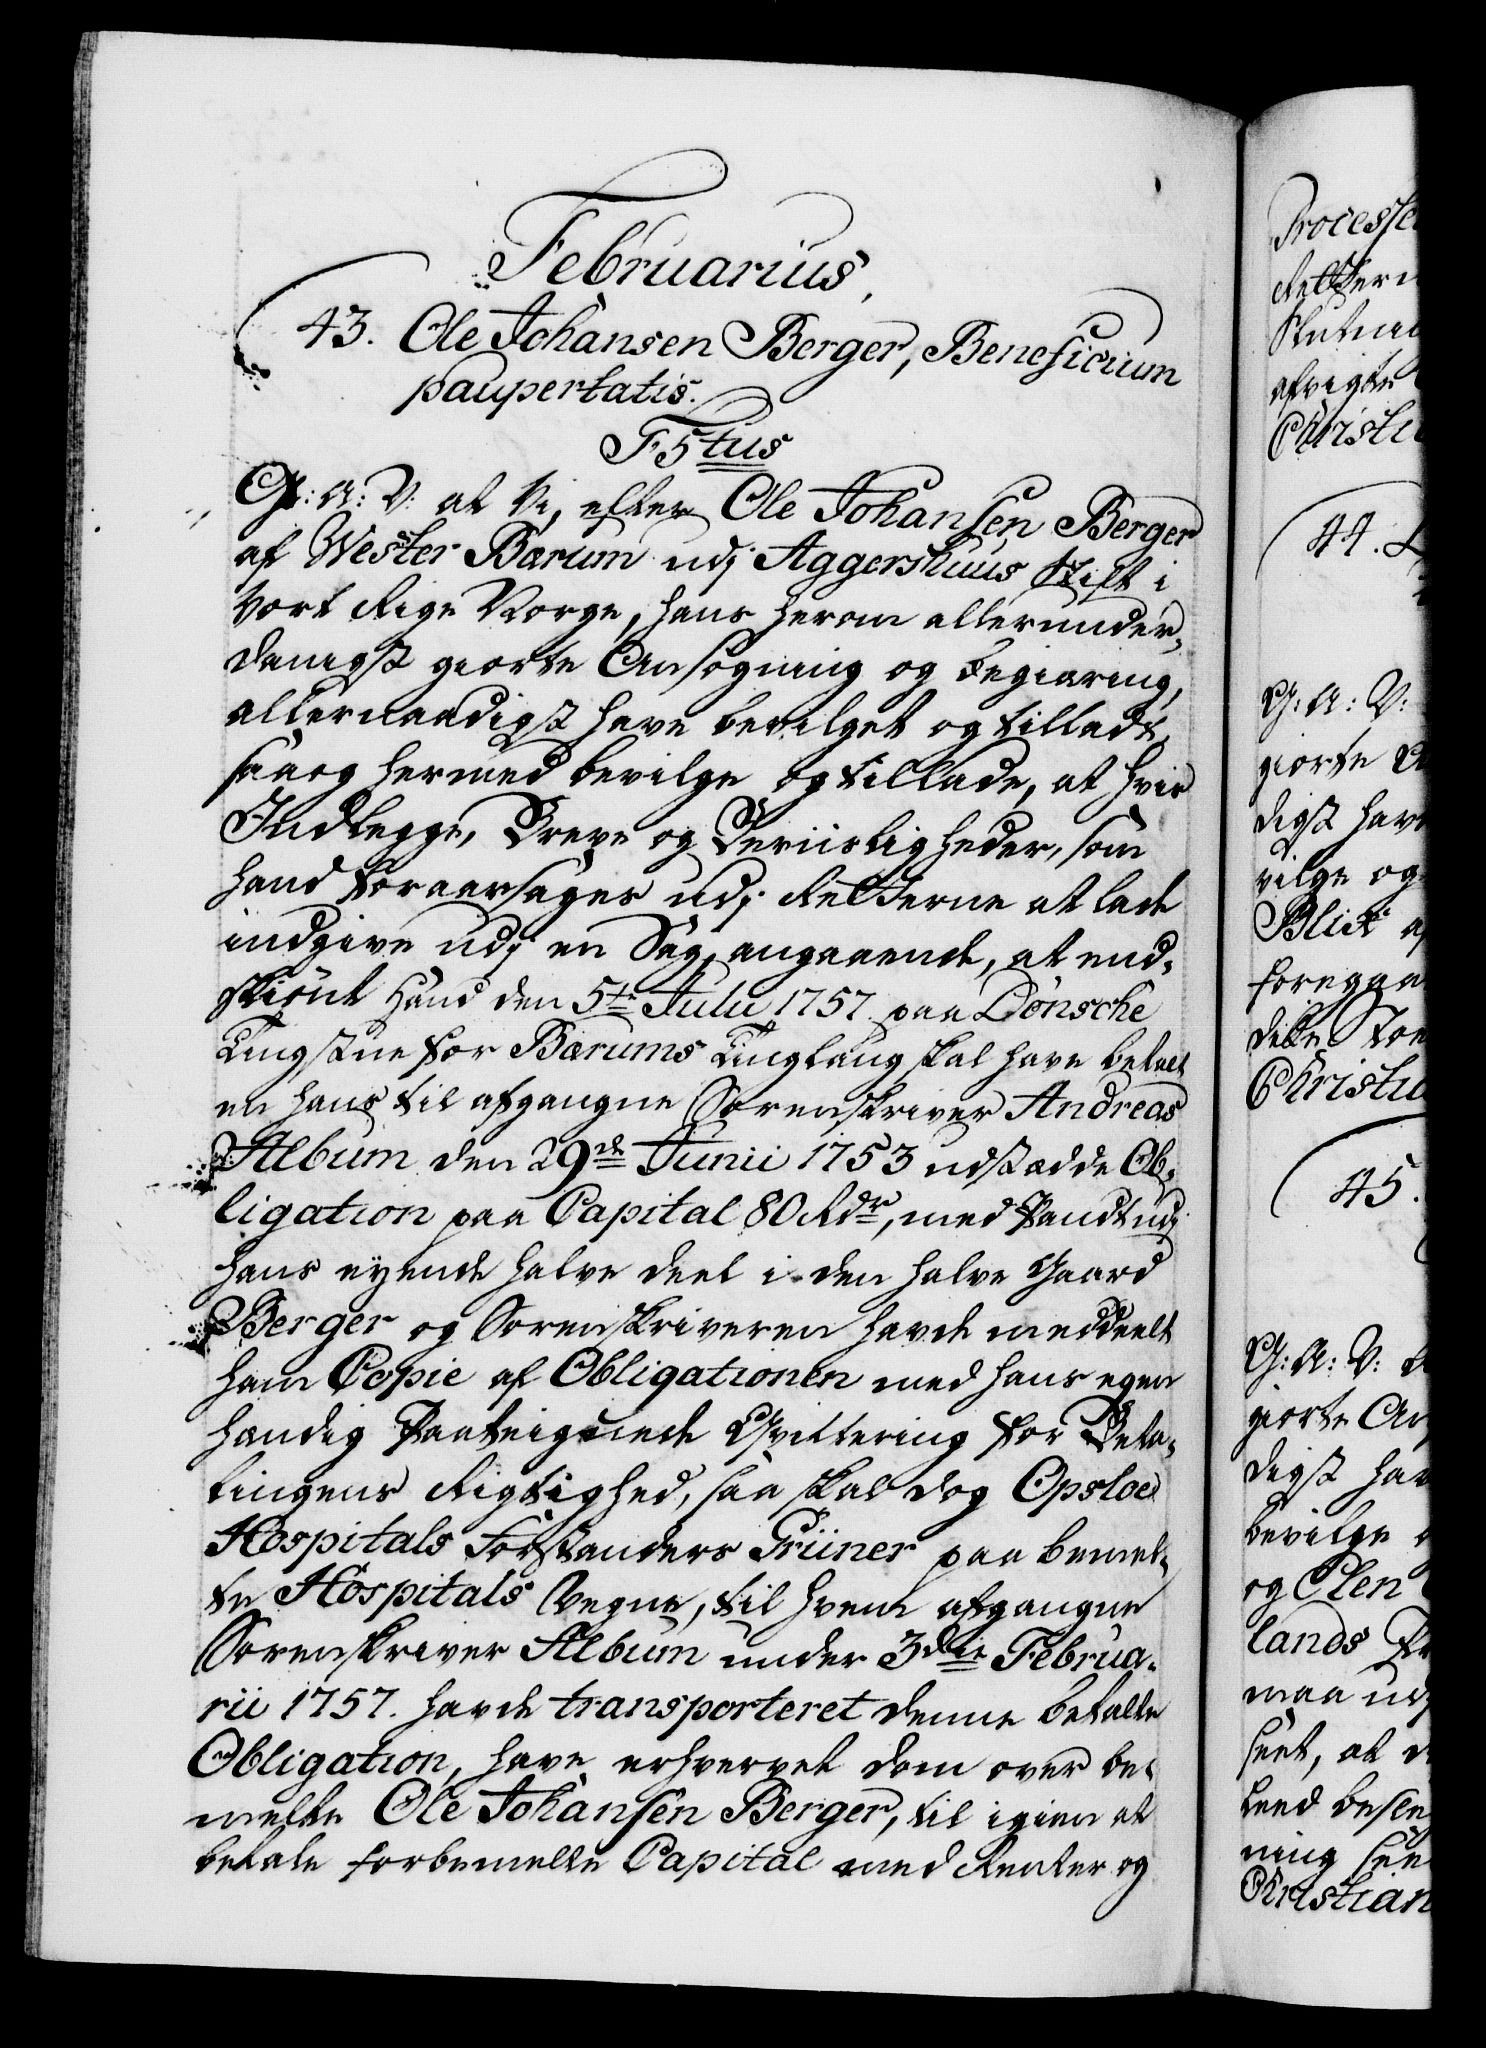 Februarius,
43. Ole Johansen Berger, Beneficium
paupertatis.
F5tus
G: A: V: at Vi, efter Ole Johansen Berger
af Wester Bærum udj Aggershuus Stift i
Vort Rige Norge, hans herom allerunder-
danigst giorte Ansøgning og begiæring,
allernaadigst have bevilget og tilladt,
saa og hermed bevilge og tillade, at hvis
Indlegge, Breve og Beviisligheder, som
hand foraarsages udj Retterne at lade
indgive udj en Sag, angaaende, at end-
skiønt hand den 5te Julii 1757 paa Dønsche
Tingstue for Bærums Tinglaug skal have betalt
en hans til afgangne Sorenskriver Andreas
Album den 29de Junii 1753 udstædde Ob-
ligation paa Capital 80 Rdr, med Pandt udj
hans eyende halve deel i den halve Gaard
Berger og Sorenskriveren havde meddeelt
ham Copie af Obligationen med hans egen
handig Paateignede Qvittering for Beta-
lingens Rigtighed, saa skal dog Opsloe
Hospitals Forstanders Grüner paa bemel-
te Hospitals Vegne, til hvem afgangne
Sorenskriver Album under 3die Februa-
rii 1757. havde transporteret denne betalte
Obligation, have erhvervet dom over be-
melte Ole Johansen Berger, til igien at
betale forbemelte Capital med Renter og
Processe
Retterne
afvigte
Christi
44.
G: A: V:
giorte
digst have
vilge og
Blick
foregaa
Christi
45.
G: A: V:
giorte An
digst hav
bevilge
og Elen
lands
maa
seet, at
ning
Christian